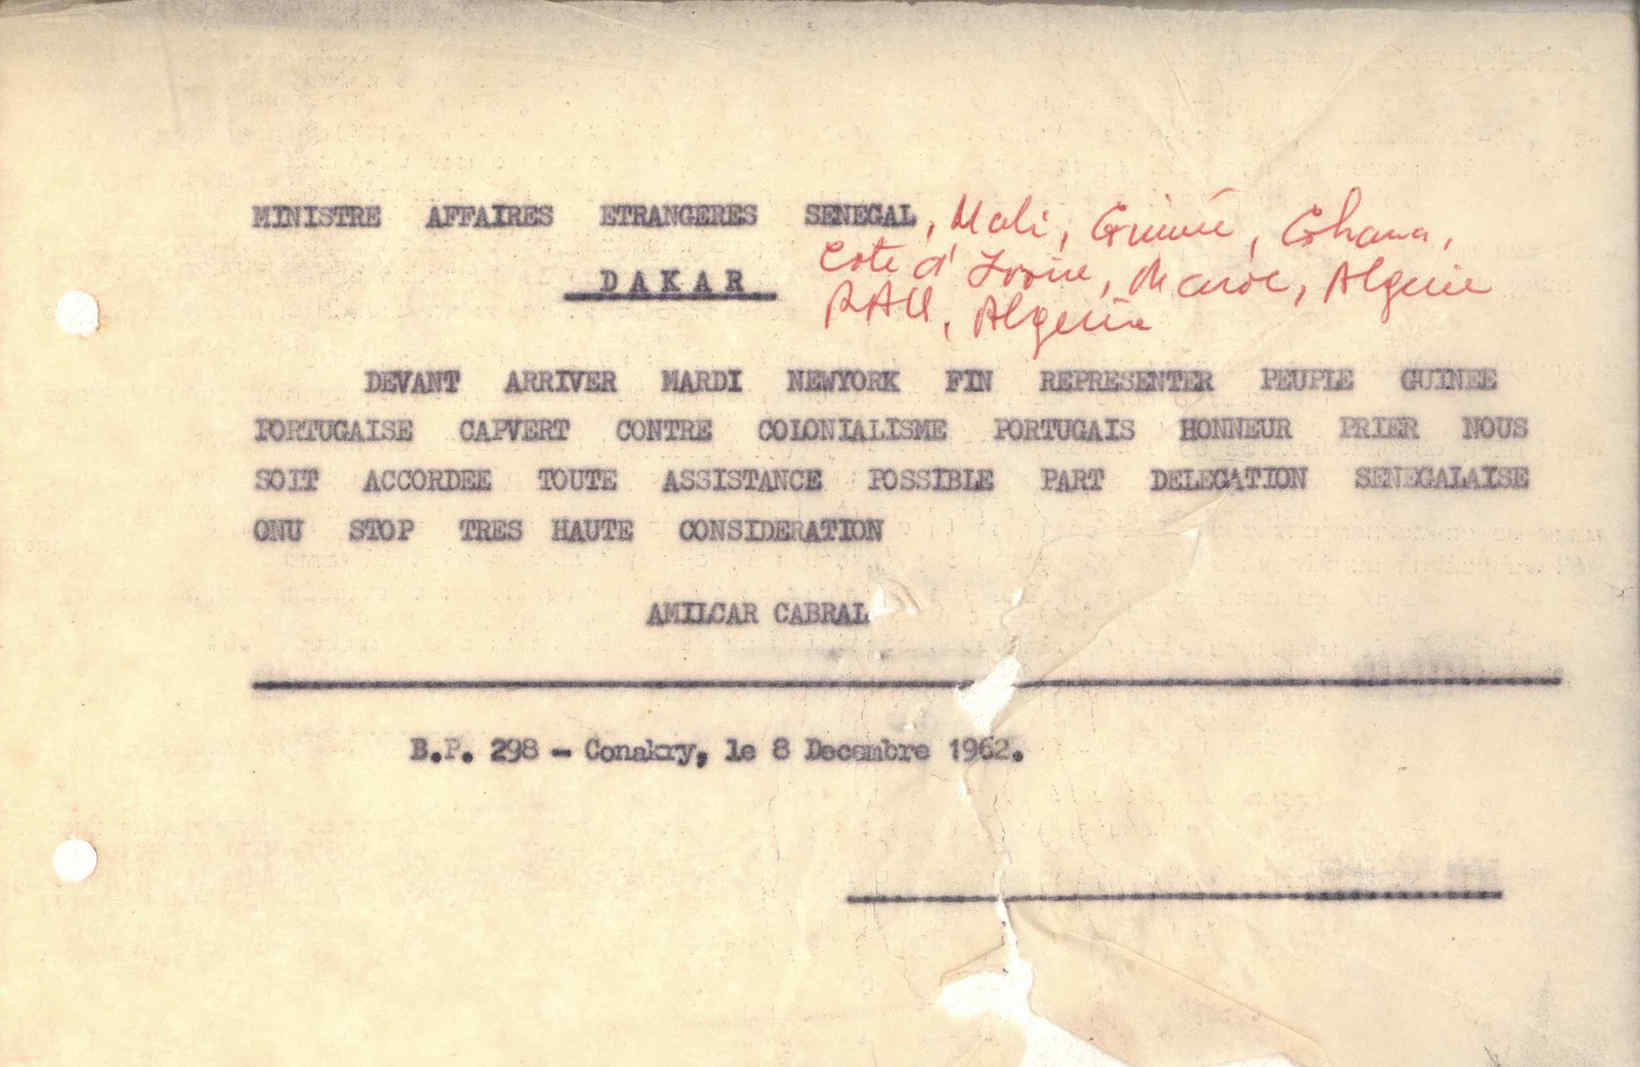 MINISTRE AFFAIRES ETRANGERES SENEGAL, Mali, Guinée, Ghana,
Cote d'Ivoire, Maroc, Algerie
DAKAR
RAU, Algerie
DEVANT ARRIVER MARDI NEWYORK FIN REPRESENTER PEUPLE GUINEE
PORTUGAISE CAPVERT CONTRE COLONIALISME PORTUGAIS HONNEUR PRIER NOUS
SOIT ACCORDEE TOUTE ASSISTANCE POSSIBLE PART DELEGATION SENEGALAISE
ONU STOP TRES HAUTE CONSIDERATION
AMILCAR CABRAL
B.P. 298 - Conakry, le 8 Decembre 1962.